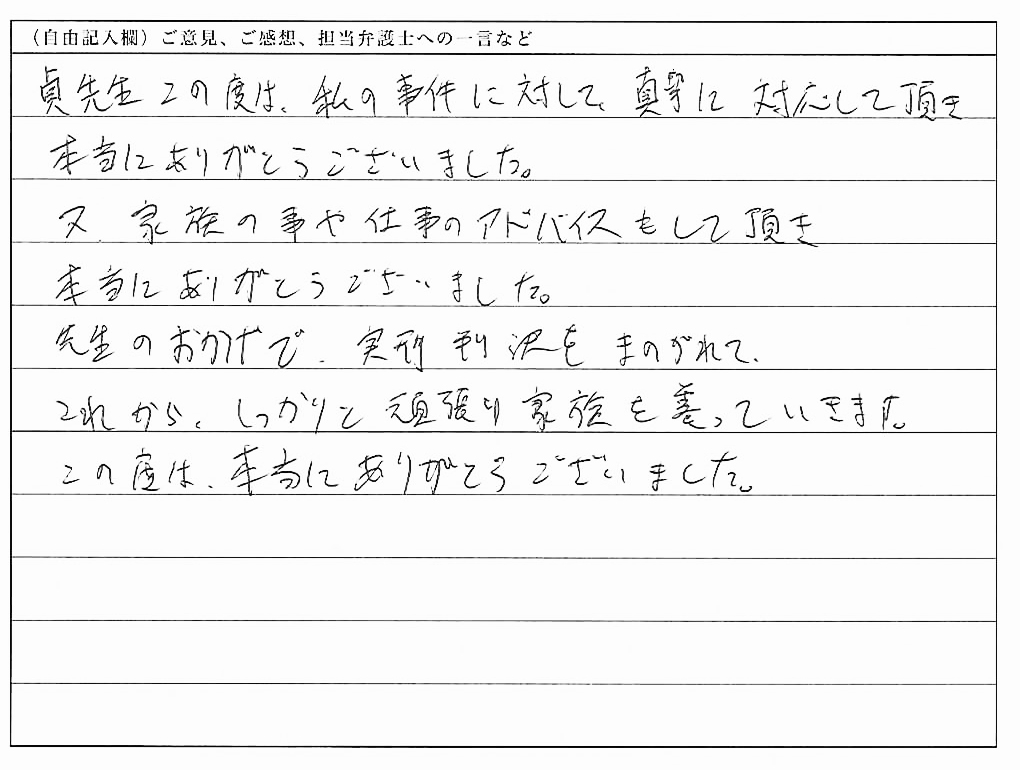 （自由記入欄）ご意見、ご感想、担当弁護士への一言など
貞先生 この度は、私の事件に対して、真摯に対応して頂き
本当にありがとうございました。
又、家族の事や仕事のアドバイスもして頂き
本当にありがとうございました。
先生のおかげで、実刑判決をまのがれて、
これから、しっかりと頑張り家族を養っていきます。
この度は、本当にありがとうございました。